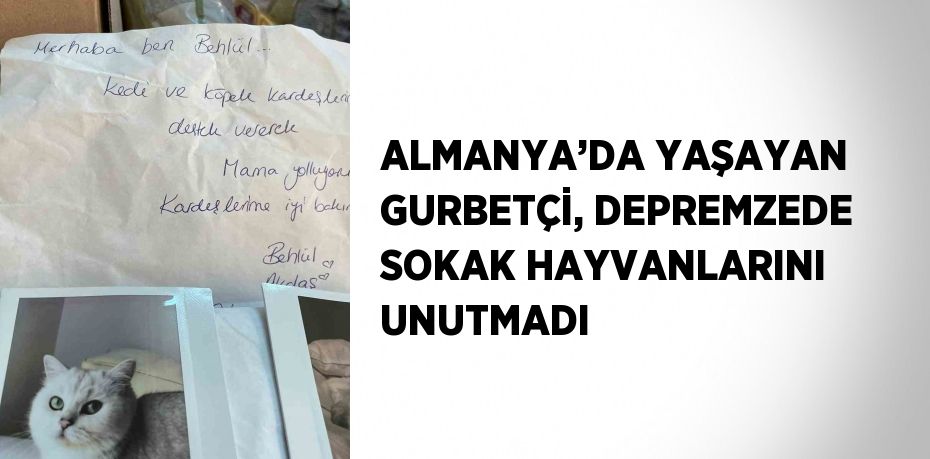 Merhaba ben Behlül...
Kedi ve köpek kardeşleri
destek vererek
Mama yolluyoru
Kardeşlerime iyi bakın
Behlül
Akdaş
ALMANYA'DA YAŞAYAN
GURBETÇİ, DEPREMZEDE
SOKAK HAYVANLARINI
UNUTMADI